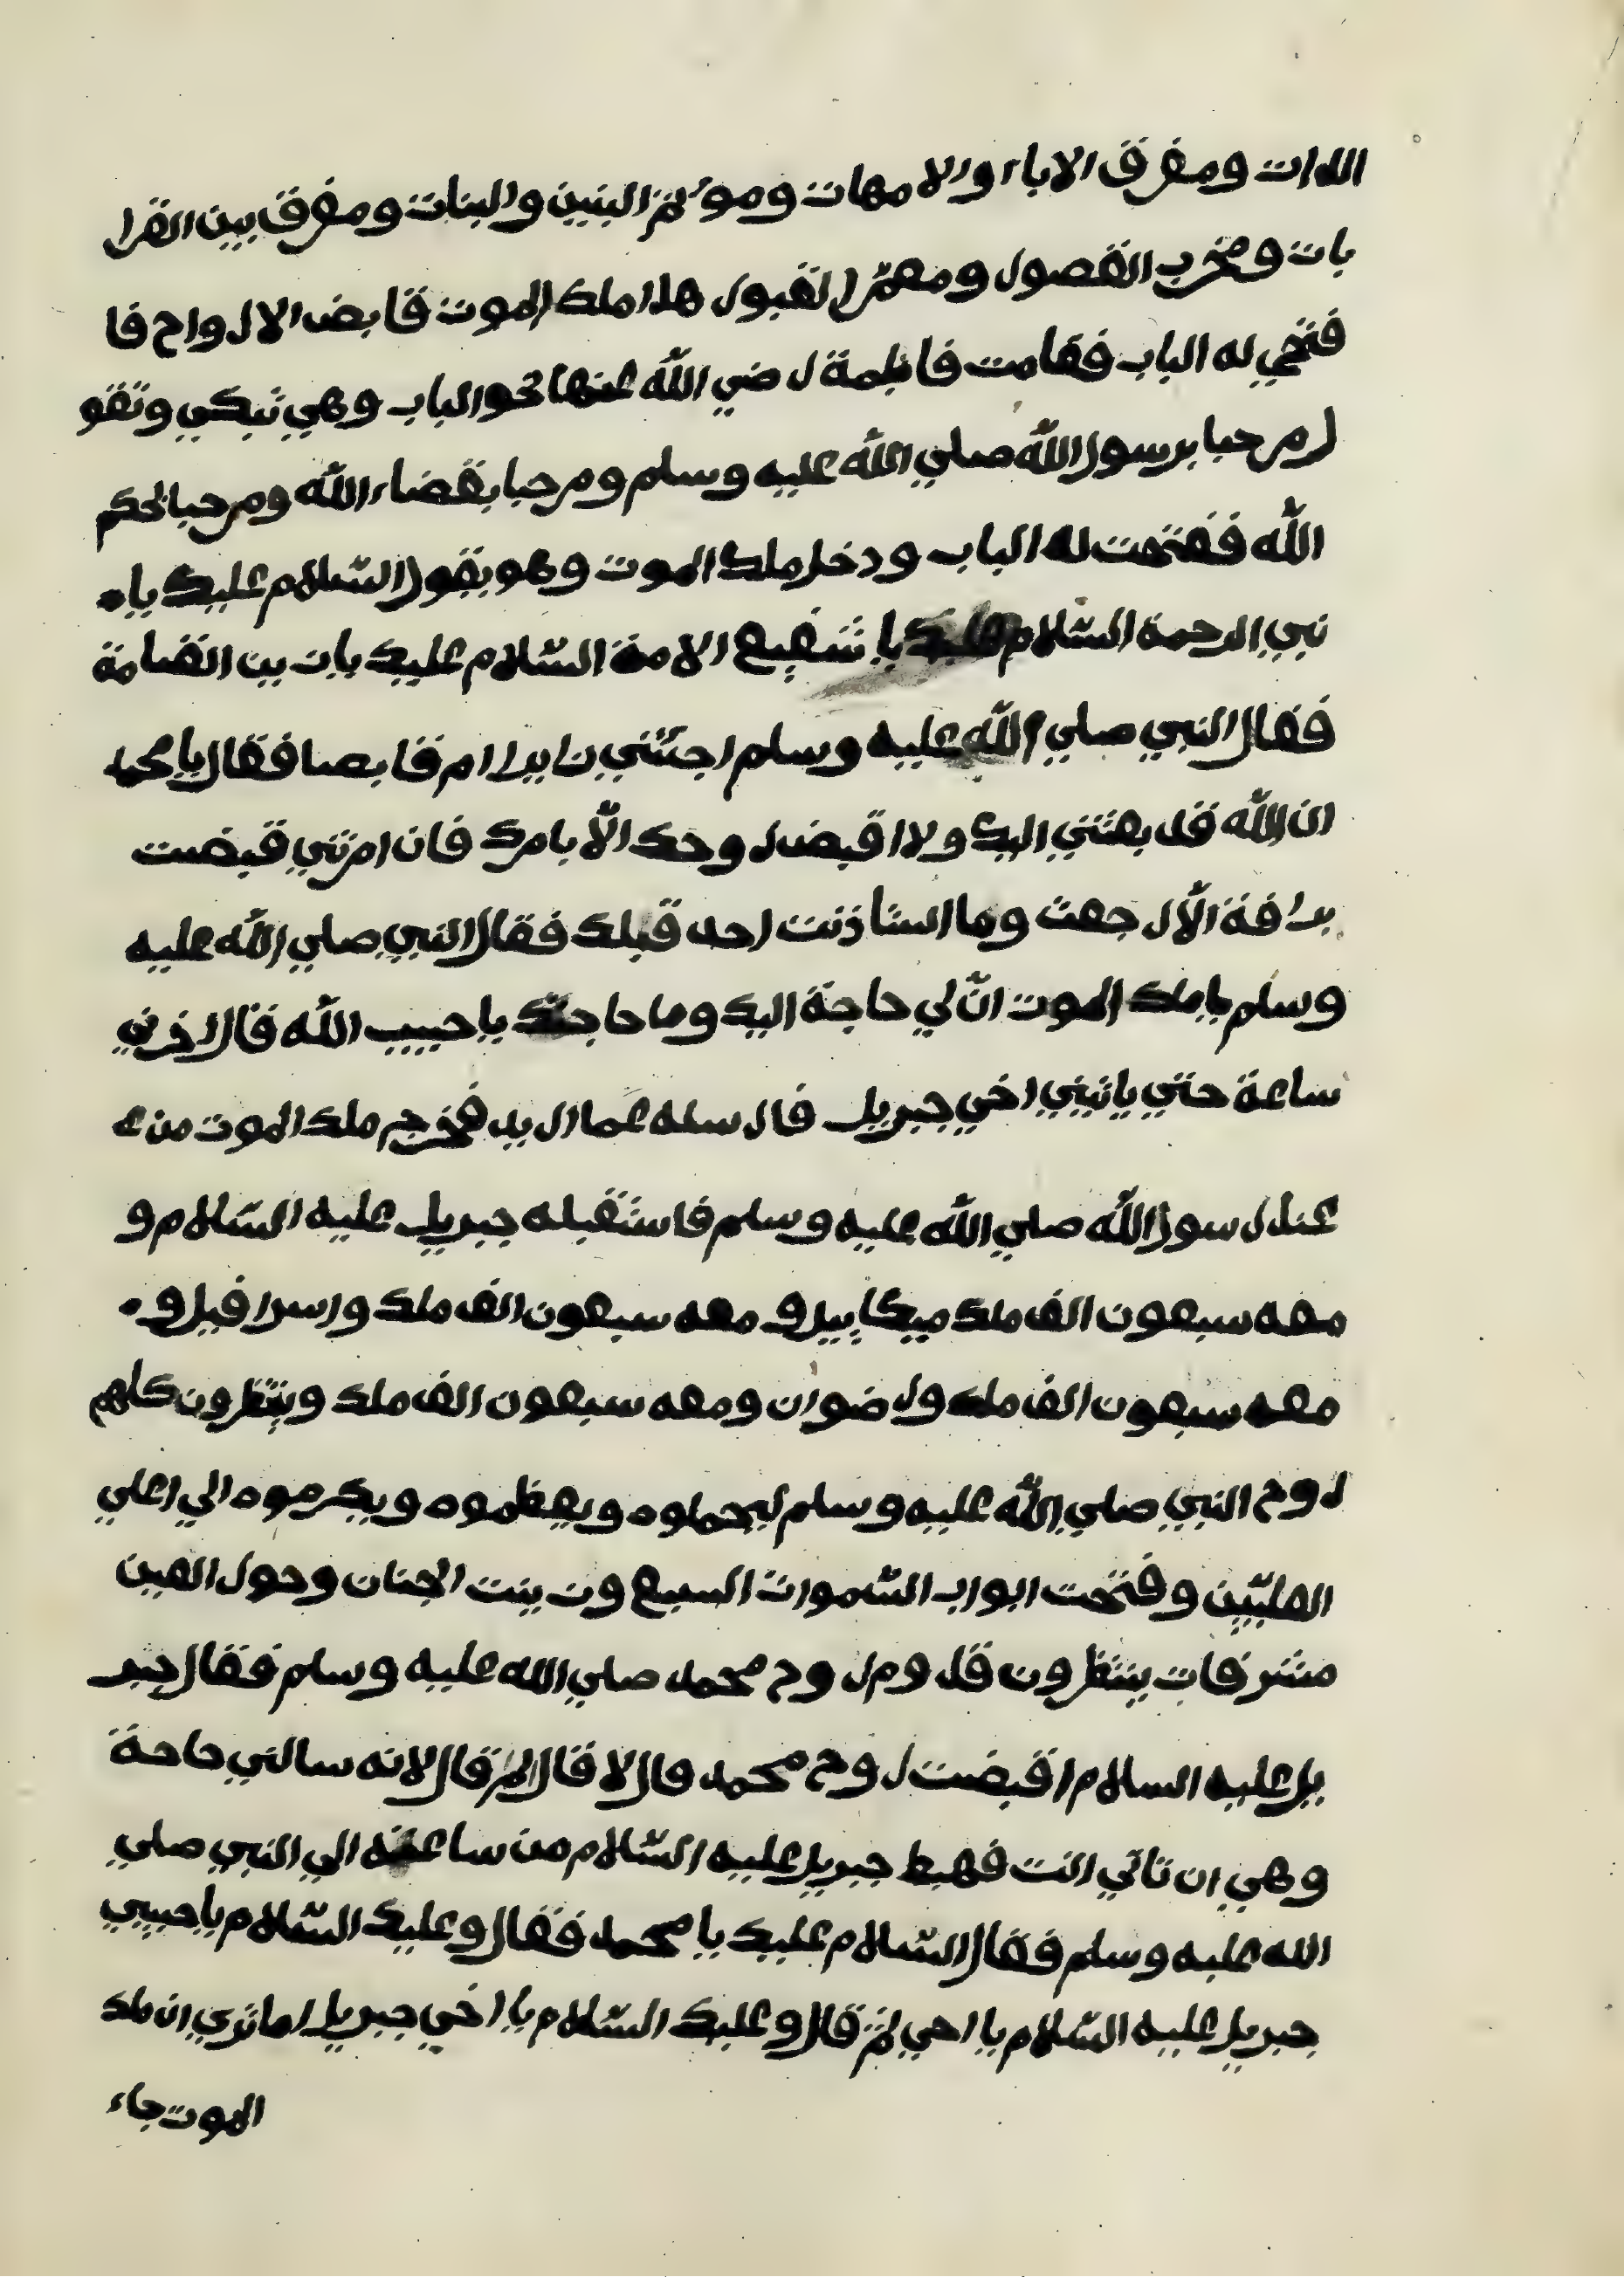 اللذات ومفرق الاباء والامهات ومؤتم البنين والبنات ومفرق بين القرا
بات ومخرب القصور ومعمّر القبور هذا ملك الموت قابض الارواح فا
فتحي له الباب فقامت فاطمة رضي الله عنها نحو الباب وهي تبكي وتقو
ل مرحبا برسول الله صلي الله عليه وسلم ومرحبا بقضاء الله ومرحبا لحكم
الله ففتحت له الباب ودخل ملك الموت وهو يقول السّلام عليك يا
نبي الرحمة السّلام عليك يا شفيع الامة السّلام عليك يا زين القيامة
فقال النبي صلي الله عليه وسلم اجئتني زايرا ام قابضا فقال يا محمد
ان الله قد بعثني اليك ولا اقبض روحك الّا بامرك فان امرتني قبضت
الّا رجعت وما استأذنت احد قبلك فقال النبي صلي الله عليه
وسلم يا ملك الموت انّ لي حاجة اليك وما حاجتك يا حبيب الله قال اخرني
ساعة حتي ياتيني اخي جبريل قال سله عما اريد فخرج ملك الموت من ع
عند رسول الله صلي الله عليه وسلم فاستقبله جبريل عليه السّلام و
معه سبعون الف ملك ميكاييل و معه سبعون الف ملك واسرافيل و
معه سبعون الف ملك ورضوان ومعه سبعون الف ملك وينتظرون كلهم
روح النبي صلي الله عليه وسلم ليحملوه ويعظموه ويكرموه الي اعلي
العليّين وفتحت ابواب السّموات السبع وزينت الجنان وحور العين
مشرفات ينتظرون قدوم روح محمد صلي الله عليه وسلم فقال جبر
يل عليه السلام اقبضت روح محمد قال لا قال لم قال لانه سالني حاجة
وهي ان تاتي انت فهبط جبريل عليه السّلام من ساعته الي النبي صلي
الله عليه وسلم فقال السّلام عليك يا محمد فقال وعليك السّلام يا حبيبي
جبريل عليه السّلام يا اخي ثم قال وعليك السّلام يا اخي جبريل اما تري ان ملك
الموت جاء